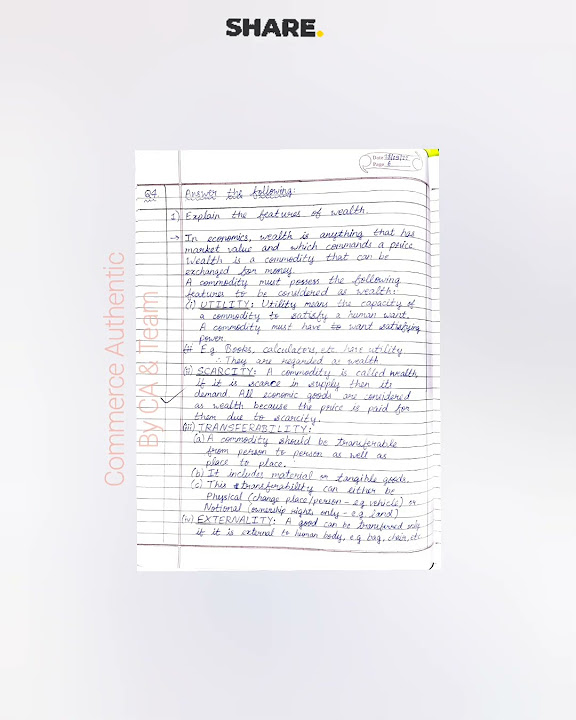 SHARE.
Date
Page 6
Q4 Answer the following:
1) Explain the features of wealth.
→ In economics, wealth is anything that has
market value and which commands a price
Wealth is a commodity that can be
exchanged for money.
A commodity must possess the following
features to be considered as wealth:
(i) UTILITY: Utility means the capacity of
a commodity to satisfy a human want.
A commodity must have to want satisfying
power.
E.g. Books, calculators, etc. have utility
∴ They are regarded as wealth
(ii) SCARCITY: A commodity is called wealth
if it is scarce in supply then its
demand. All economic goods are considered
as wealth because the price is paid for
them due to scarcity.
(iii) TRANSFERABILITY:
(a) A commodity should be transferable
from person to person as well as
place to place.
(b) It includes material or tangible goods.
(c) This transferability can either be
Physical (change place/person - e.g vehicle) or
Notional (ownership rights only - e.g. land)
(iv) EXTERNALITY: A good can be transferred only
if it is external to human body, e.g bag, chair, etc
Commerce Authentic
By CA & ITeam